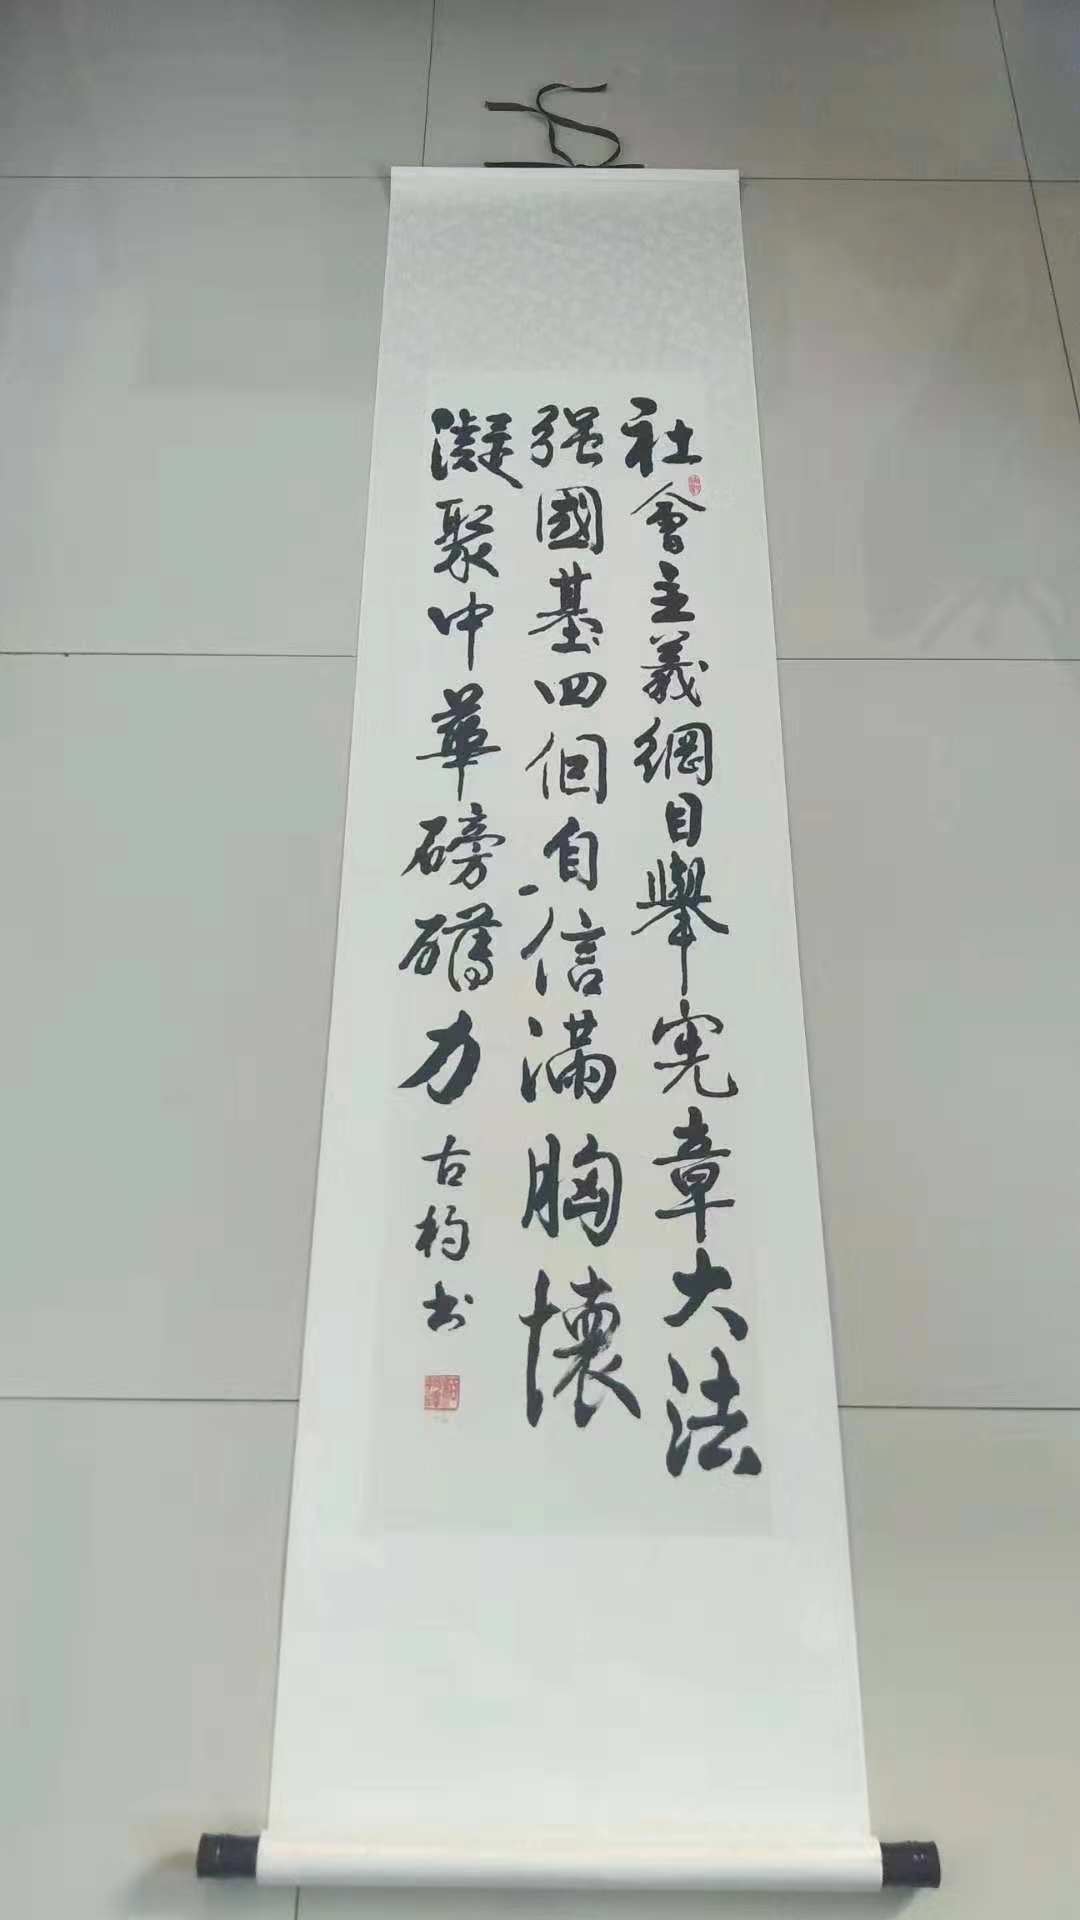 社會主義綱目舉憲章大法
强國基四個自信滿胸懷
凝聚中華磅礴力
古杓书